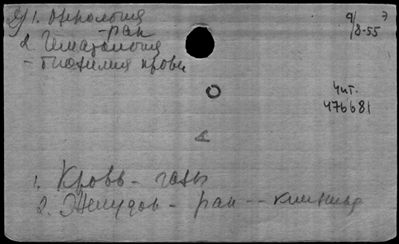 1. Онкология
- рак
2. Гематология
- биохимия крови
9/8-55
Чит.
476681
1. Кровь - газы
2. Желудок - рак - клиника